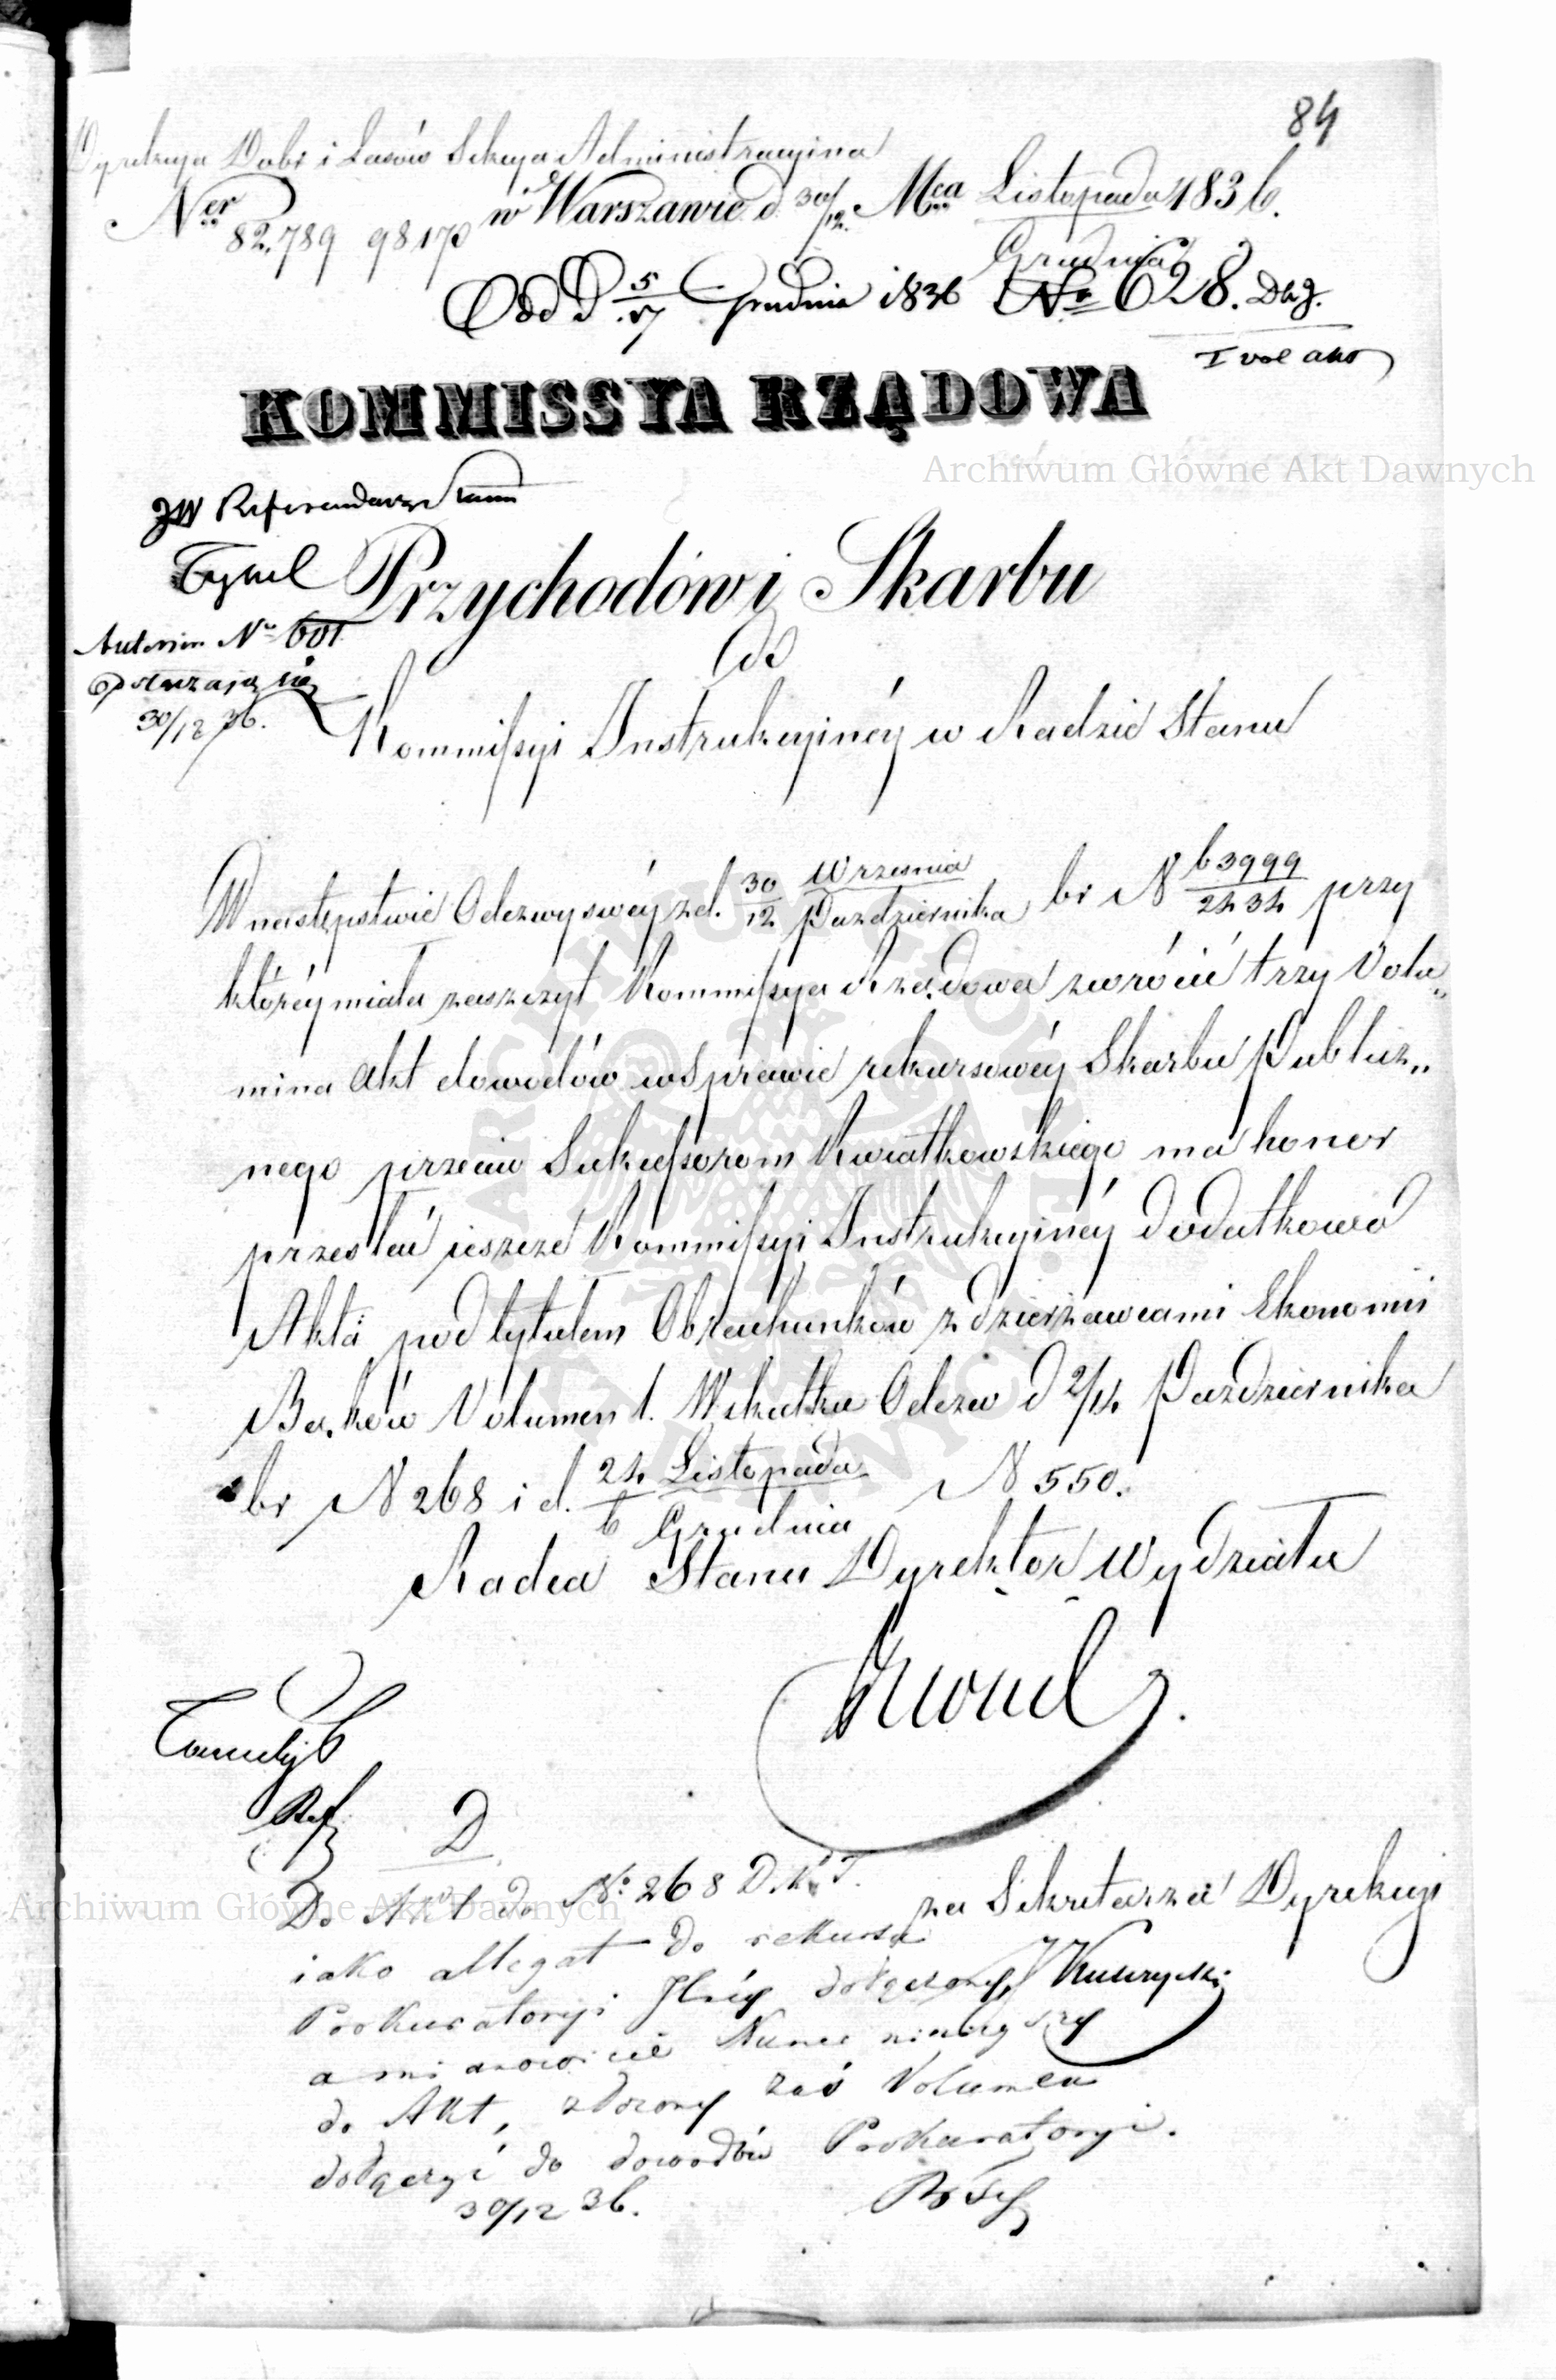 84
Dyrekcya Dóbr i Lasów Sekcya Administracyina
Ner 82,789 98170 w Warszawie d. 30/12. Mca Listopada 1836.
Grudnia
Odd D 5/17 Grudnia 1836 No 628. Dkg.
I vol akt
KOMMISSYA RZĄDOWA
Archiwum Główne Akt Dawnych
JW Referendarz Stanu
Przychodów i Skarbu
No 601
do
30/12 36.
Kommissyi Instrukcyinéy w Radzie Stanu
W następstwie Odezwy swéy z d. 30/12 Września/Pazdziernika br N 63999/2434 przy
któréy miała zaszczyt Kommissya Rządowa zwrócić trzy Volu„
mina Akt dowodów w Sprawie rekursowéy Skarbu Publicz„
nego przeciw Sukcessorom Kwiatkowskiego ma honor
przesłać ieszcze Kommissyi Instrukcyinéy dodatkowo
Akta pod tytułem Obrachunków z dzierżawcami Ekonomii
Bąków Volumen 1. W skutku Odezw d 2/14 Pazdziernika
br N 268 i d. 24/6 Listopada/Grudnia N 550.
Radca Stanu Dyrektor Wydziału
Ref
D
Do Akt do No 268 D.K.J.
za Sekretarza Dyrekcyi
iako allegat do rekursu
Prokuratoryi dołączony,
a mianowicie Numer ninieyszy
do Akt, złożony zaś Volumen
dołączyć do dowodów Prokuratoryi.
30/12 36.
Archiwum Główne Akt Dawnych